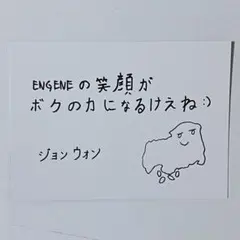 ENGENEの笑顔が
ボクの力になるけえね:)
ジョンウォン